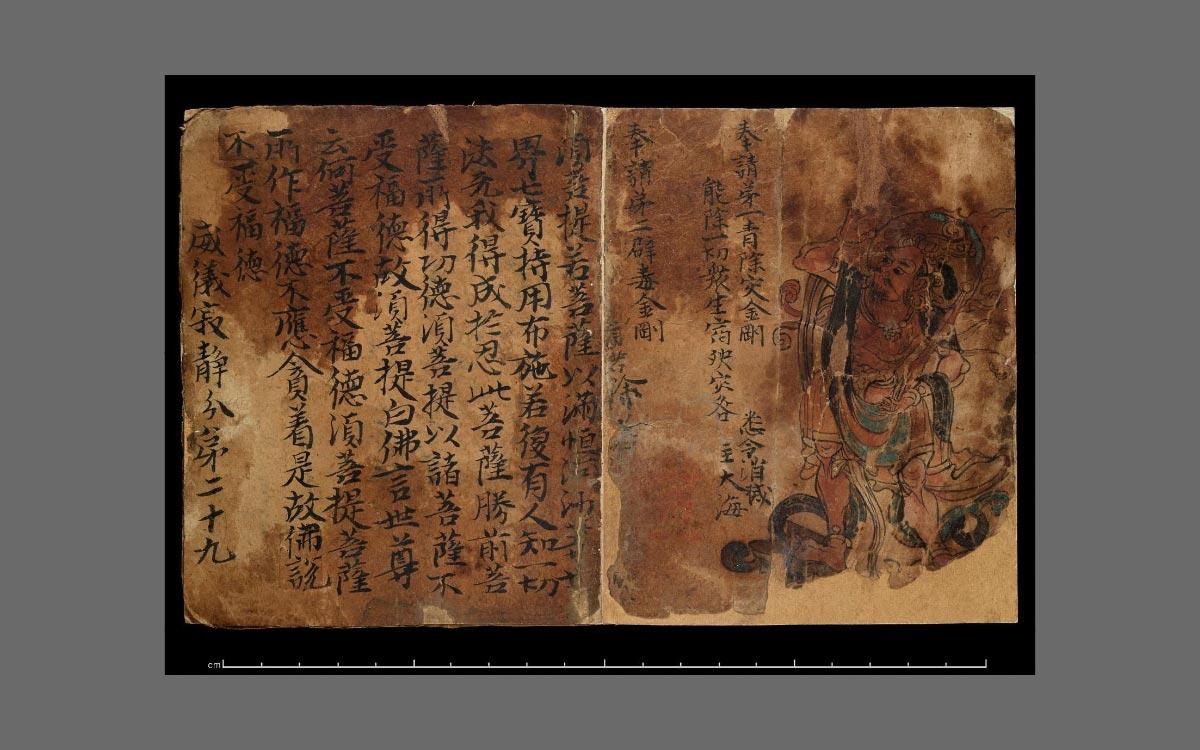 奉請第一青除灾金剛
能除一切衆生宿殃灾各
悉令消滅
主大海
奉請第二辟毒金剛
除
須菩提若菩薩以滿恒河沙等
界七寶持用布施若復有人知一切
法无我得成於忍此菩薩勝前菩
薩所得功德須菩提以諸菩薩不
受福德故須菩提白佛言世尊
云何菩薩不受福德須菩提菩薩
所作福德不應貪着是故佛說
不受福德
威儀寂靜分第二十九
cm